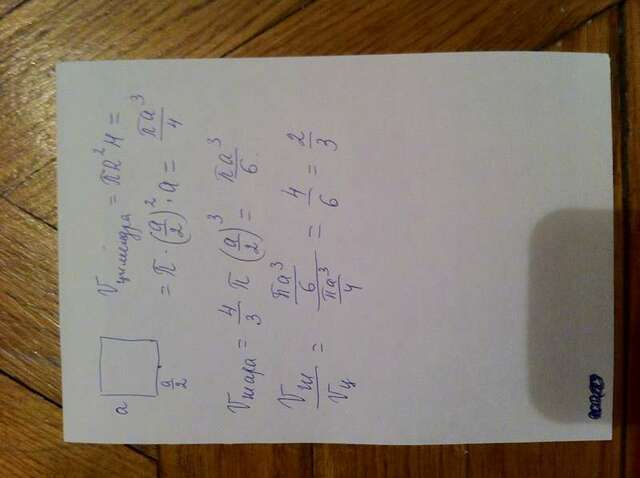 a
a/2
Vцилиндра = πR²H =
= π · (a/2)² · a = πa³/4
Vшара = 4/3 π (a/2)³ = πa³/6
Vш/Vц = (πa³/6)/(πa³/4) = 4/6 = 2/3